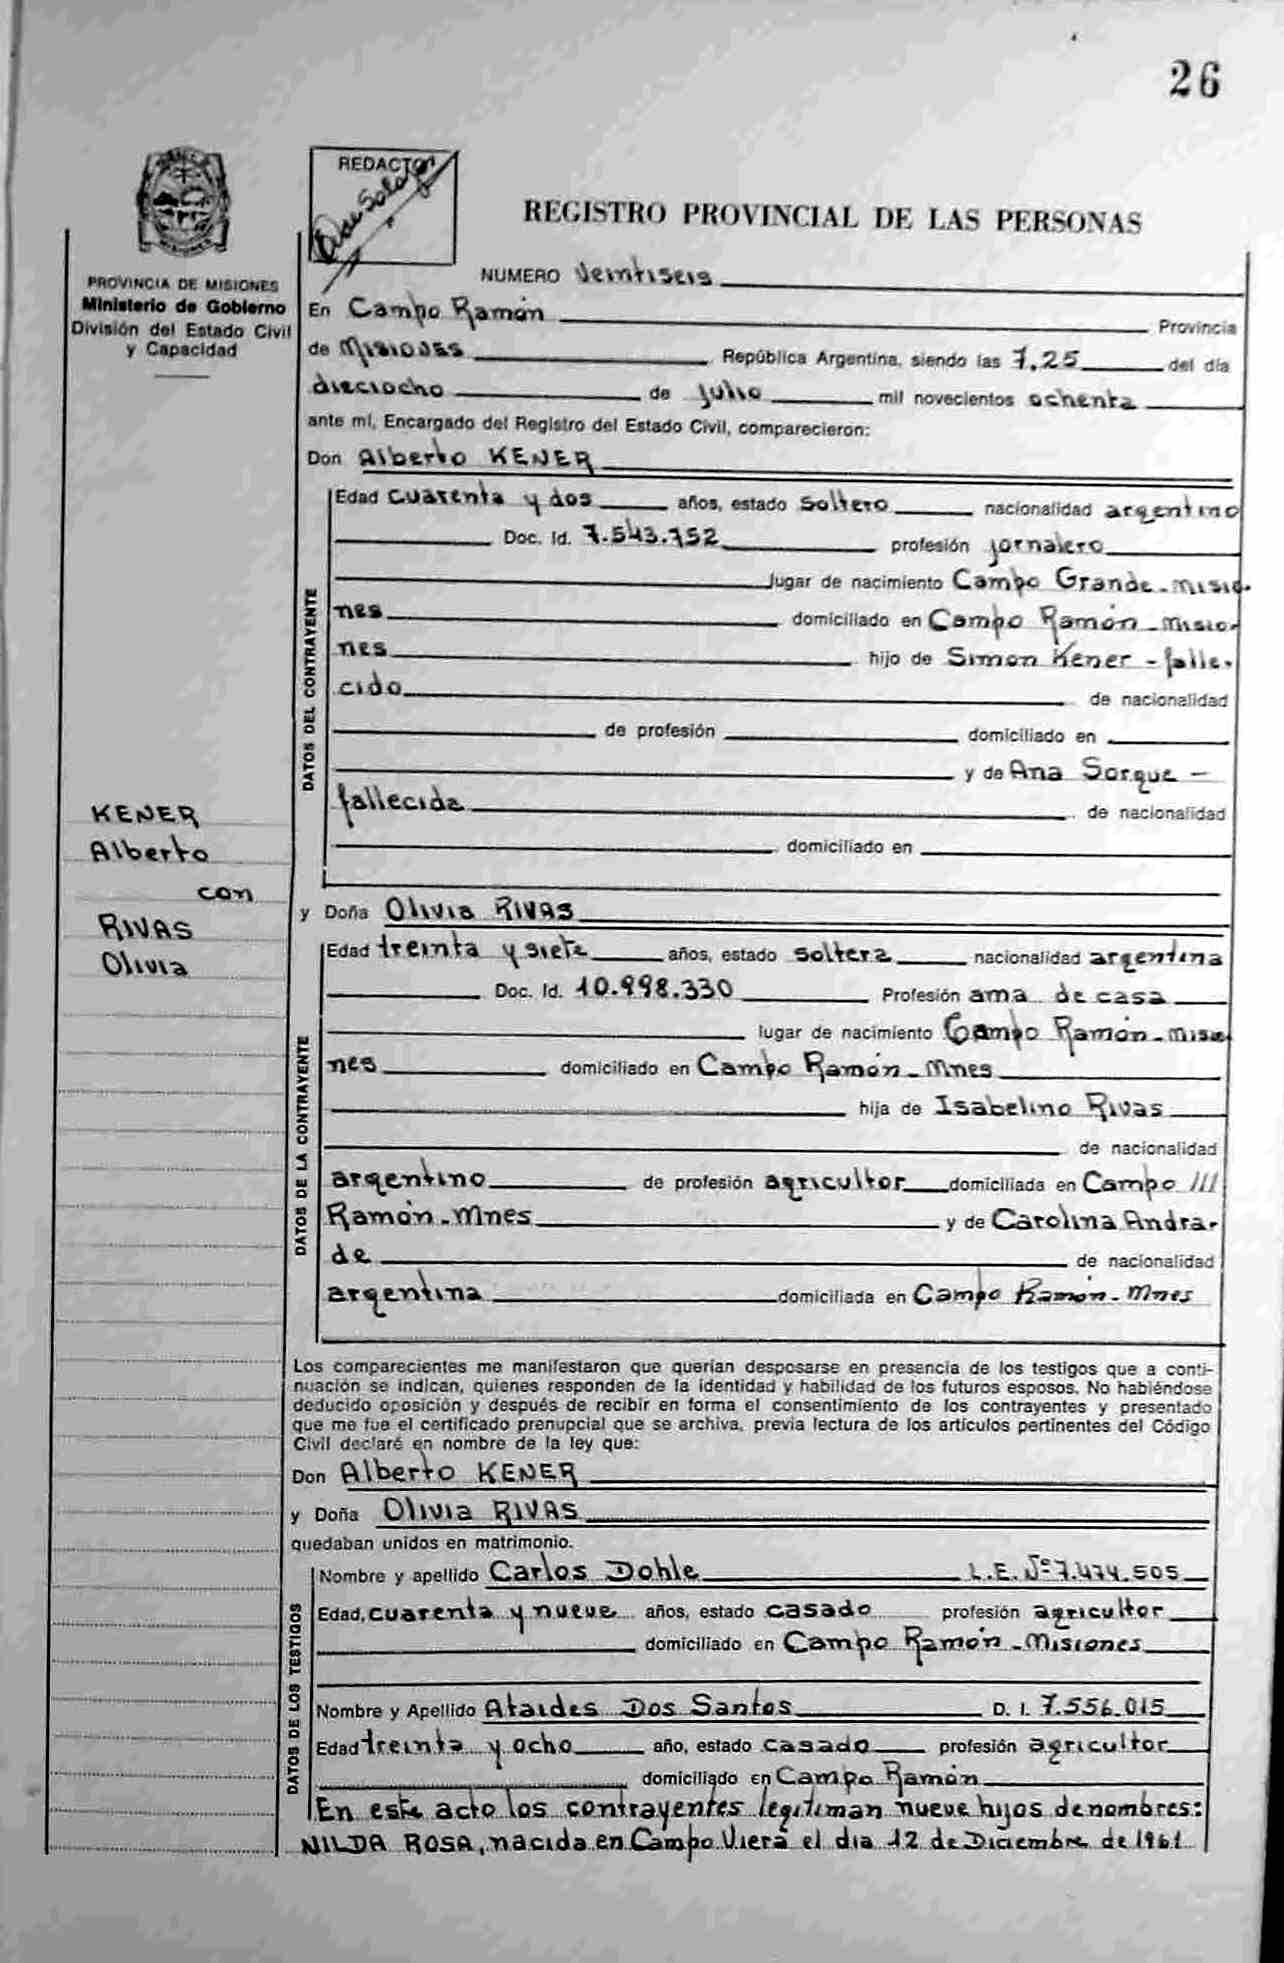 26
REDACTOR
REGISTRO PROVINCIAL DE LAS PERSONAS
PROVINCIA DE MISIONES
Ministerio de Gobierno
División del Estado Civil
y Capacidad
NUMERO Veintiseis
En Campo Ramón Provincia
de Misiones República Argentina, siendo las 7,25 del día
dieciocho de Julio mil novecientos ochenta
ante mí, Encargado del Registro del Estado Civil, comparecieron:
Don Alberto KENER
DATOS DEL CONTRAYENTE
Edad cuarenta y dos años, estado soltero nacionalidad argentino
Doc. Id. 7.543.752 profesión jornalero
lugar de nacimiento Campo Grande-Misio-
nes domiciliado en Campo Ramón-Misio-
nes hijo de Simon Kener - falle-
cido de nacionalidad
de profesión domiciliado en
y de Ana Sorque -
fallecida de nacionalidad
domiciliado en
KENER
Alberto
con
RIVAS
Olivia
y Doña Olivia RIVAS
DATOS DE LA CONTRAYENTE
Edad treinta y siete años, estado soltera nacionalidad argentina
Doc. Id. 10.998.330 Profesión ama de casa
lugar de nacimiento Campo Ramón-Misio
nes domiciliado en Campo Ramón-Mnes
hija de Isabelino Rivas
de nacionalidad
argentino de profesión agricultor domiciliada en Campo ///
Ramón-Mnes y de Carolina Andra-
de de nacionalidad
argentina domiciliada en Campo Ramón-Mnes
Los comparecientes me manifestaron que querían desposarse en presencia de los testigos que a conti-
nuación se indican, quienes responden de la identidad y habilidad de los futuros esposos. No habiéndose
deducido oposición y después de recibir en forma el consentimiento de los contrayentes y presentado
que me fue el certificado prenupcial que se archiva, previa lectura de los artículos pertinentes del Código
Civil declaré en nombre de la ley que:
Don Alberto KENER
y Doña Olivia RIVAS
quedaban unidos en matrimonio.
DATOS DE LOS TESTIGOS
Nombre y apellido Carlos Dohle L.E. Nº 7.474.505
Edad, cuarenta y nueve años, estado casado profesión agricultor
domiciliado en Campo Ramón-Misiones
Nombre y Apellido Ataides Dos Santos D. I. 7.556.015
Edad treinta y ocho año, estado casado profesión agricultor
domiciliado en Campo Ramón
En este acto los contrayentes legitiman nueve hijos de nombres:
NILDA ROSA, nacida en Campo Viera el dia 12 de Diciembre de 1961